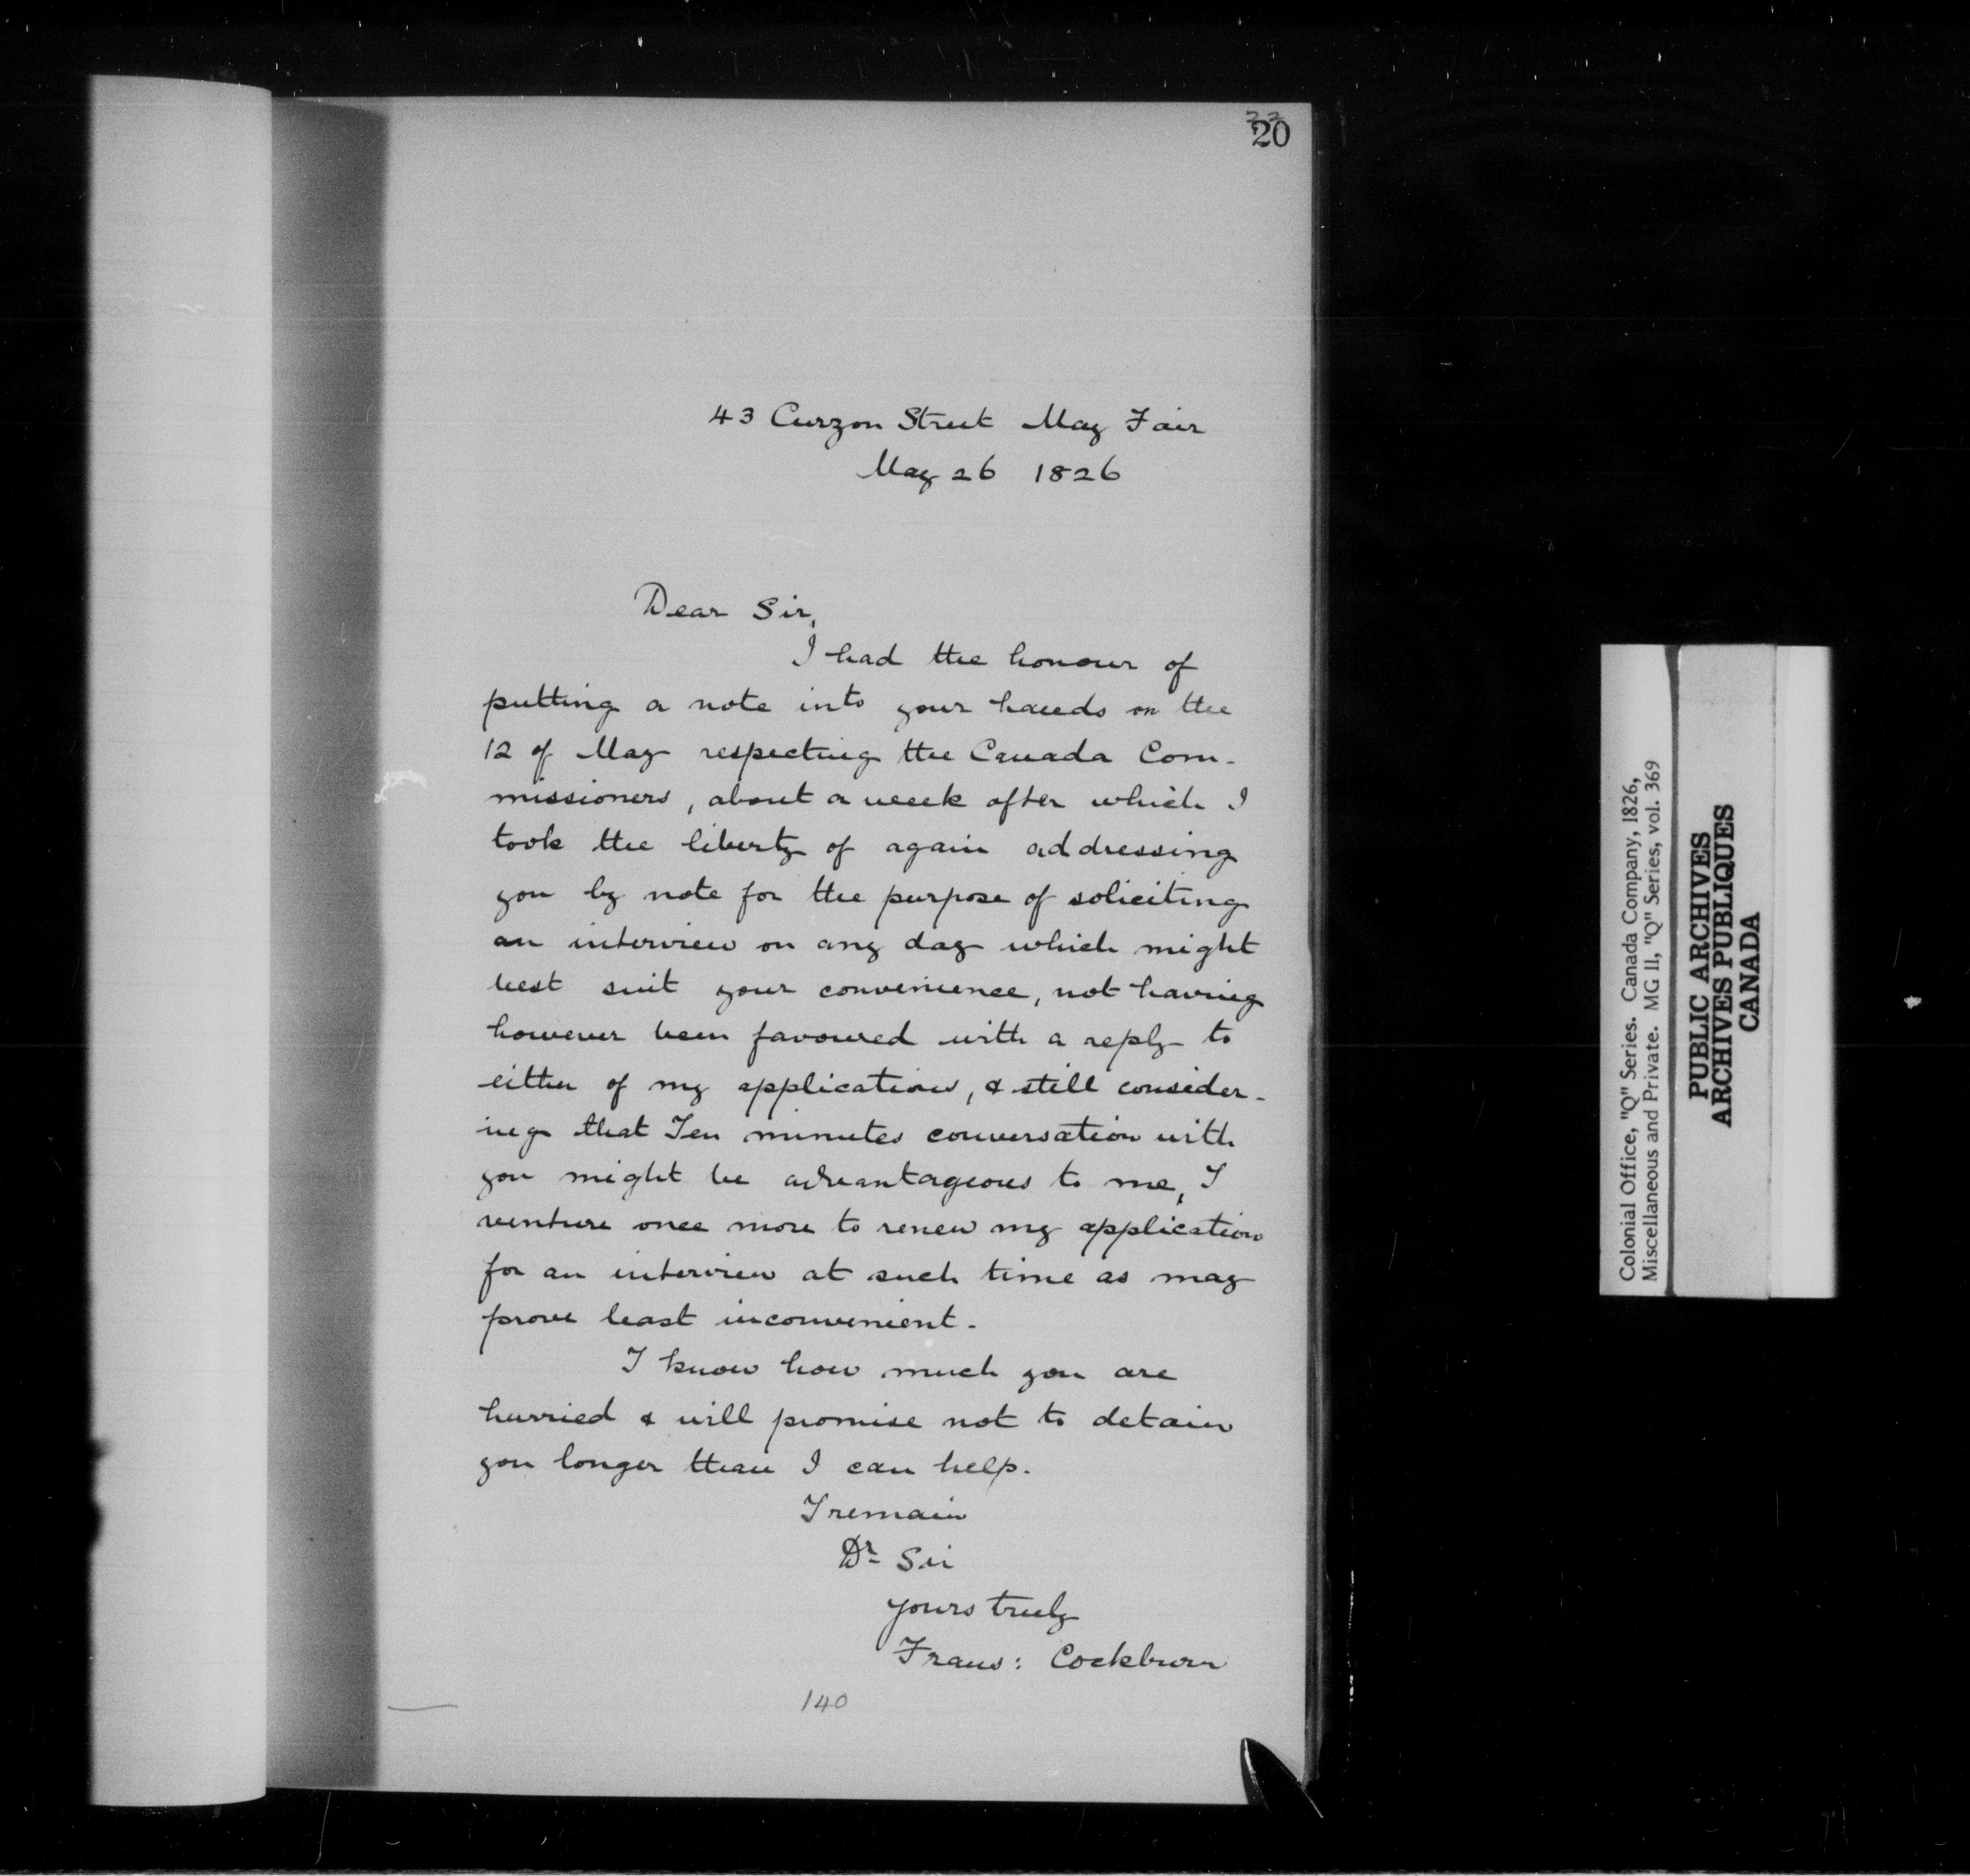 22
20
43 Curzon Street May Fair
May 26 1826
Dear Sir,
I had the honour of
putting a note into your hands on the
12 of May respecting the Canada Com-
missioners, about a week after which I
took the liberty of again addressing
you by note for the purpose of soliciting
an interview on any day which might
best suit your convenience, not having
however been favoured with a reply to
either of my applications, & still consider-
ing that Ten minutes conversation with
you might be advantageous to me, I
venture once more to renew my application
for an interview at such time as may
prove least inconvenient.
I know how much you are
hurried & will promise not to detain
you longer than I can help.
I remain
Dr Sir
yours truly
Frans: Cockburn
140
Colonial Office, "Q" Series. Canada Company, 1826,
Miscellaneous and Private. MG 11, "Q" Series, vol. 369
PUBLIC ARCHIVES
ARCHIVES PUBLIQUES
CANADA